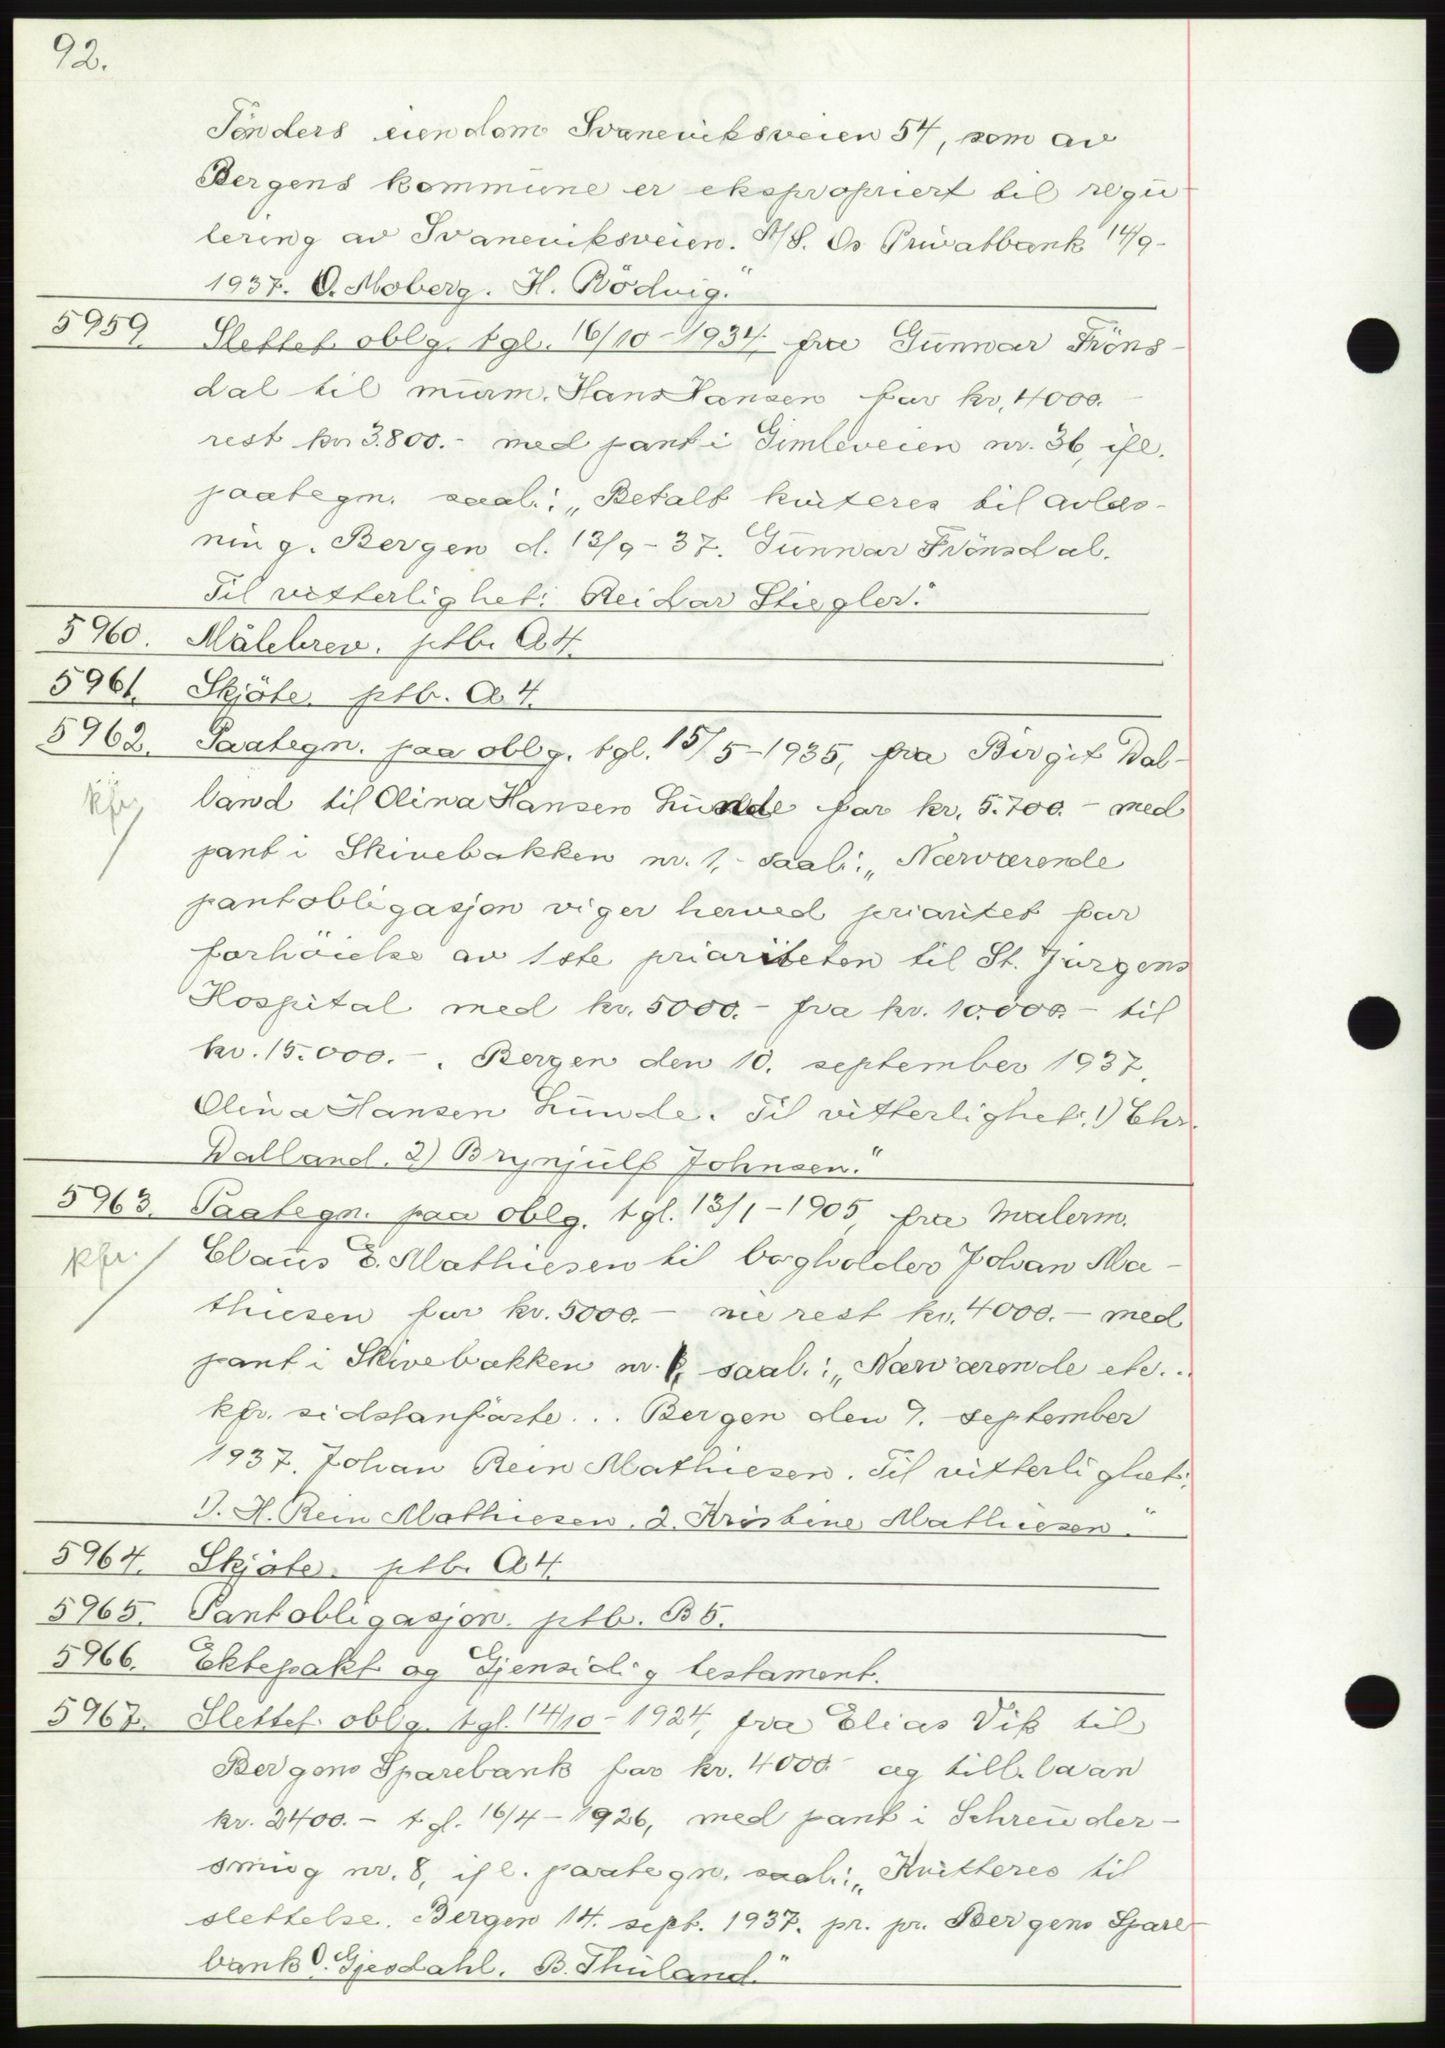 92.
Tönders eiendom Svaneviksveien 54, som av
Bergens kommune er ekspropriert til regu-
lering av Svaneviksveien. A/S. Os Privatbank 14/9-
1937. O. Moberg. H. Rödvig."
5959. Slettet oblg. tgl. 16/10-1934, fra Gunnar Fröns-
dal til murm. Hans Hansen for kr. 4000.-
rest kr. 3.800.- med pant i Gimleveien nr. 36, ifl.
paategn. saal.: „Betalt kviteres til avlæs-
ning. Bergen d. 13/9-37. Gunnar Frönsdal.
Til vitterlighet: Reidar Stiegler."
5960. Målebrev. ptb. A4.
5961. Skjöte. ptb. A4.
5962. Paategn. paa oblg. tgl. 15/5-1935, fra Birgit Dal-
kfr. land til Olina Hansen Lunde for kr. 5.700.- med
pant i Skivebakken nr. 1,- saal.: „Nærværende
pantobligasjon viger herved prioritet for
forhöielse av 1ste prioriteten til St. Jörgens
Hospital med kr. 5000.- fra kr. 10.000.- til
kr. 15.000.-. Bergen den 10. september 1937.
Olina Hansen Lunde. Til vitterlighet: 1) Chr.
Dalland. 2) Brynjulf Johnsen."
5963. Paategn. paa oblg. tgl. 13/1-1905, fra malerm.
kfr. Claus E. Mathiesen til bogholder Johan Ma-
thiesen for kr. 5000.- nu rest kr. 4000.- med
pant i Skivebakken nr. 1, saal.: „Nærværende etc...
kfr. sidstanförte... Bergen den 9. september
1937. Johan Rein Mathiesen. Til vitterlighet:
1). H. Rein Mathiesen. 2. Kristine Mathiesen."
5964. Skjöte. ptb. A4.
5965. Pantobligasjon. ptb. B5.
5966. Ektepakt og Gjensidig testament.
5967. Slettet oblg. tgl. 14/10-1924, fra Elias Vik til
Bergens Sparebank for kr. 4000.- og till. laan
kr. 2400.- tgl. 16/4-1926, med pant i Schreuder-
smug nr. 8, ifl. paategn. saal.: „Kvitteres til
slettelse. Bergen 14. sept. 1937. pr. pr. Bergens Spare-
bank O. Gjesdahl. B. Thuland."